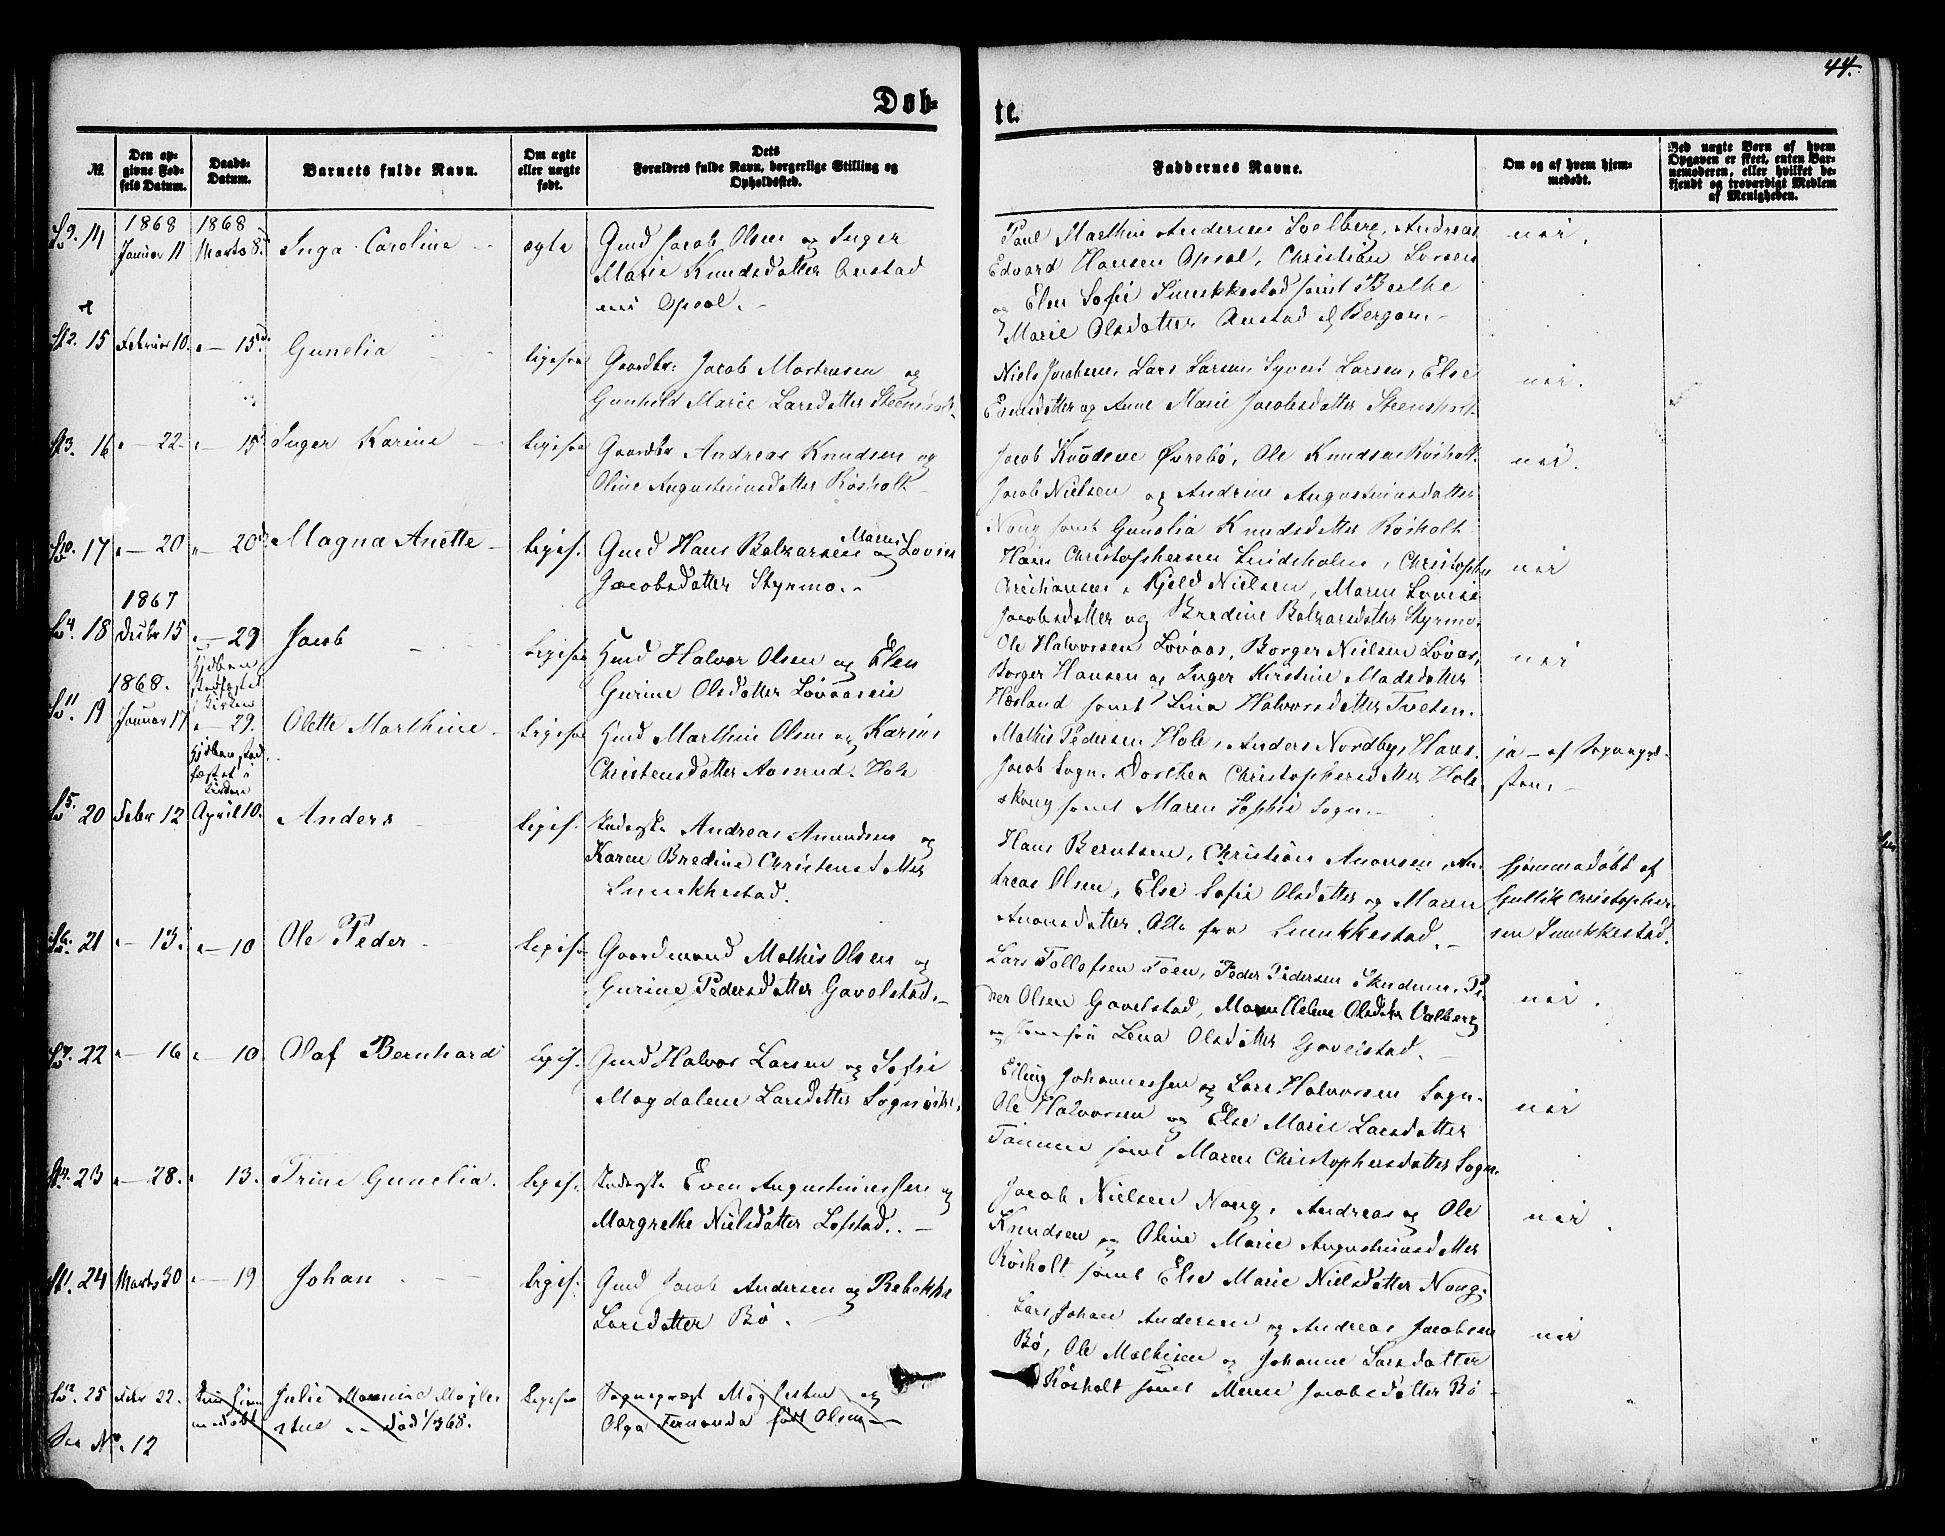 44.
Døb-
te.
№
Den op-
givne Fød-
sels Datum.
Daabs-
Datum.
Barnets fulde Navn.
Om ægte
eller uægte
født.
Dets
Forældres fulde Navn, borgerlige Stilling og
Opholdssted.
Faddernes Navne.
Om og af hvem hjem-
medøbt.
Ved uægte Børn af hvem
Opgaven er skeet, enten Bar-
nemoderen, eller hvilket be-
kjendt og troværdigt Medlem
af Menigheden.
14
1868
Januar 11
1868
Marts 8.
Inga Caroline
ægte
Gmd Jacob Olsen og Inger
Marie Knudsdatter
Opsal.
Paul Marthin Andersen Solberg, Andreas
Edvard Hansen Opsal, Christian Larsen
og Elen Sofie Smukkestad samt Berthe
Marie Olsdatter
nei.
15
Februar 10.
" — 15
Gunelia
ligesaa
Gaardbr. Jacob Mortensen og
Gunhild Marie Larsdatter
Lars Larsen Syvert Larsen, Else
og Anne Marie Jacobsdatter Steensholt
nei.
16
" — 22.
" — 15
Inger Karine
ligesaa
Gaardbr Andreas Knudsen og
Oline Augustinusdatter Røsholt
Jacob Øvrebø, Ole Knudsen Røsholt
Jacob Nielsen og Andrine Augustinusdatter
Noug samt Gunelia Knudsdatter Røsholt
nei.
17
" — 20
" — 20
Magna Anette
liges.
Gmd Hans Balzarsen og Maren Lovise
Jacobsdatter Styrmo.
Hans Christophersen Lindsholm, Christopher
Christiansen, Kjeld Nielsen, Maren Lovise
Jacobsdatter og Bredine Balzarsdatter Styrmo.
nei
18
1867
Decbr 15
" — 29
Jacob
ligesaa
Hmd Halvor Olsen og Elen
Gurine Olsdatter Løvaaseie
Ole Halvorsen Løvaas, Borger Nielsen Løvas,
Borger Hansen og Inger Kirstine Madsdatter
Hæsland samt Lina Halvorsdatter Tveten.
nei
19
1868.
Januar 17
" — 29.
Olette Marthine
ligesaa
Hmd Marthin Olsen og Karine
Christensdatter Aasrud. Hole
Mathis Pedersen Hole, Anders Nordby, Hans
Jacob Sogn. Dorthea Christophersdatter Hole-
skoug samt Maren Sophie Sogn.
ja — af Sognepræ-
sten.
20
Febr 12
April 10.
Anders
ligis.
Inderste Andreas Amundsen og
Karen Bredine Christensdatter
Smukkestad.
Hans Berntsen, Christian Anonsen, An-
dreas Olsen, Else Sofie Olsdatter og Maren
Anonsdatter. Alle fra Smukkestad.
hjemmedøbt af
Gullik Christopher-
sen Smukkestad.
21
" — 13.
" — 10
Ole Peder
ligesaa
Gaardmand Mathis Olsen og
Gurine Pedersdatter Gavelstad.
Lars Tollefsen Foen, Peder Pedersen
Olsen Gavelstad, Maren Helene Olsdatter Valberg
og Lena Olsdatter Gavelstad.
nei.
22
" — 16
" — 10
Olaf Bernhard
ligis.
Gmd Halvor Larsen og Sofie
Magdalene Larsdatter
Elling Johannessen og Lars Halvorsen Sogn.
Ole Halvorsen og Else Marie Larsdatter
samt Maren Christophersdatter Sogn.
nei
23
" — 28.
" 13.
Trine Gunelia.
ligis.
Inderste Even Augustinussen og
Margrethe Nielsdatter Løfstad.
Jacob Nielsen Noug, Andreas og Ole
Knudsen og Oline Marie Augustinusdatter
Røsholt samt Else Marie Nielsdatter Noug.
nei.
24
Marts 30
" — 19
Johan
ligis.
Gmd Jacob Andersen og Rebekka
Larsdatter Bø.
Lars Johan Andersen og Andreas Jacobsen
Bø, Ole Mathisen og Johanne Larsdatter
Røsholt samt Maren Jacobsdatter Bø
nei
25
Febr 22.
Julie
død 1/3 68.
ligesaa
Sognepræst og
Olga Fernanda født Olsen
See No. 12